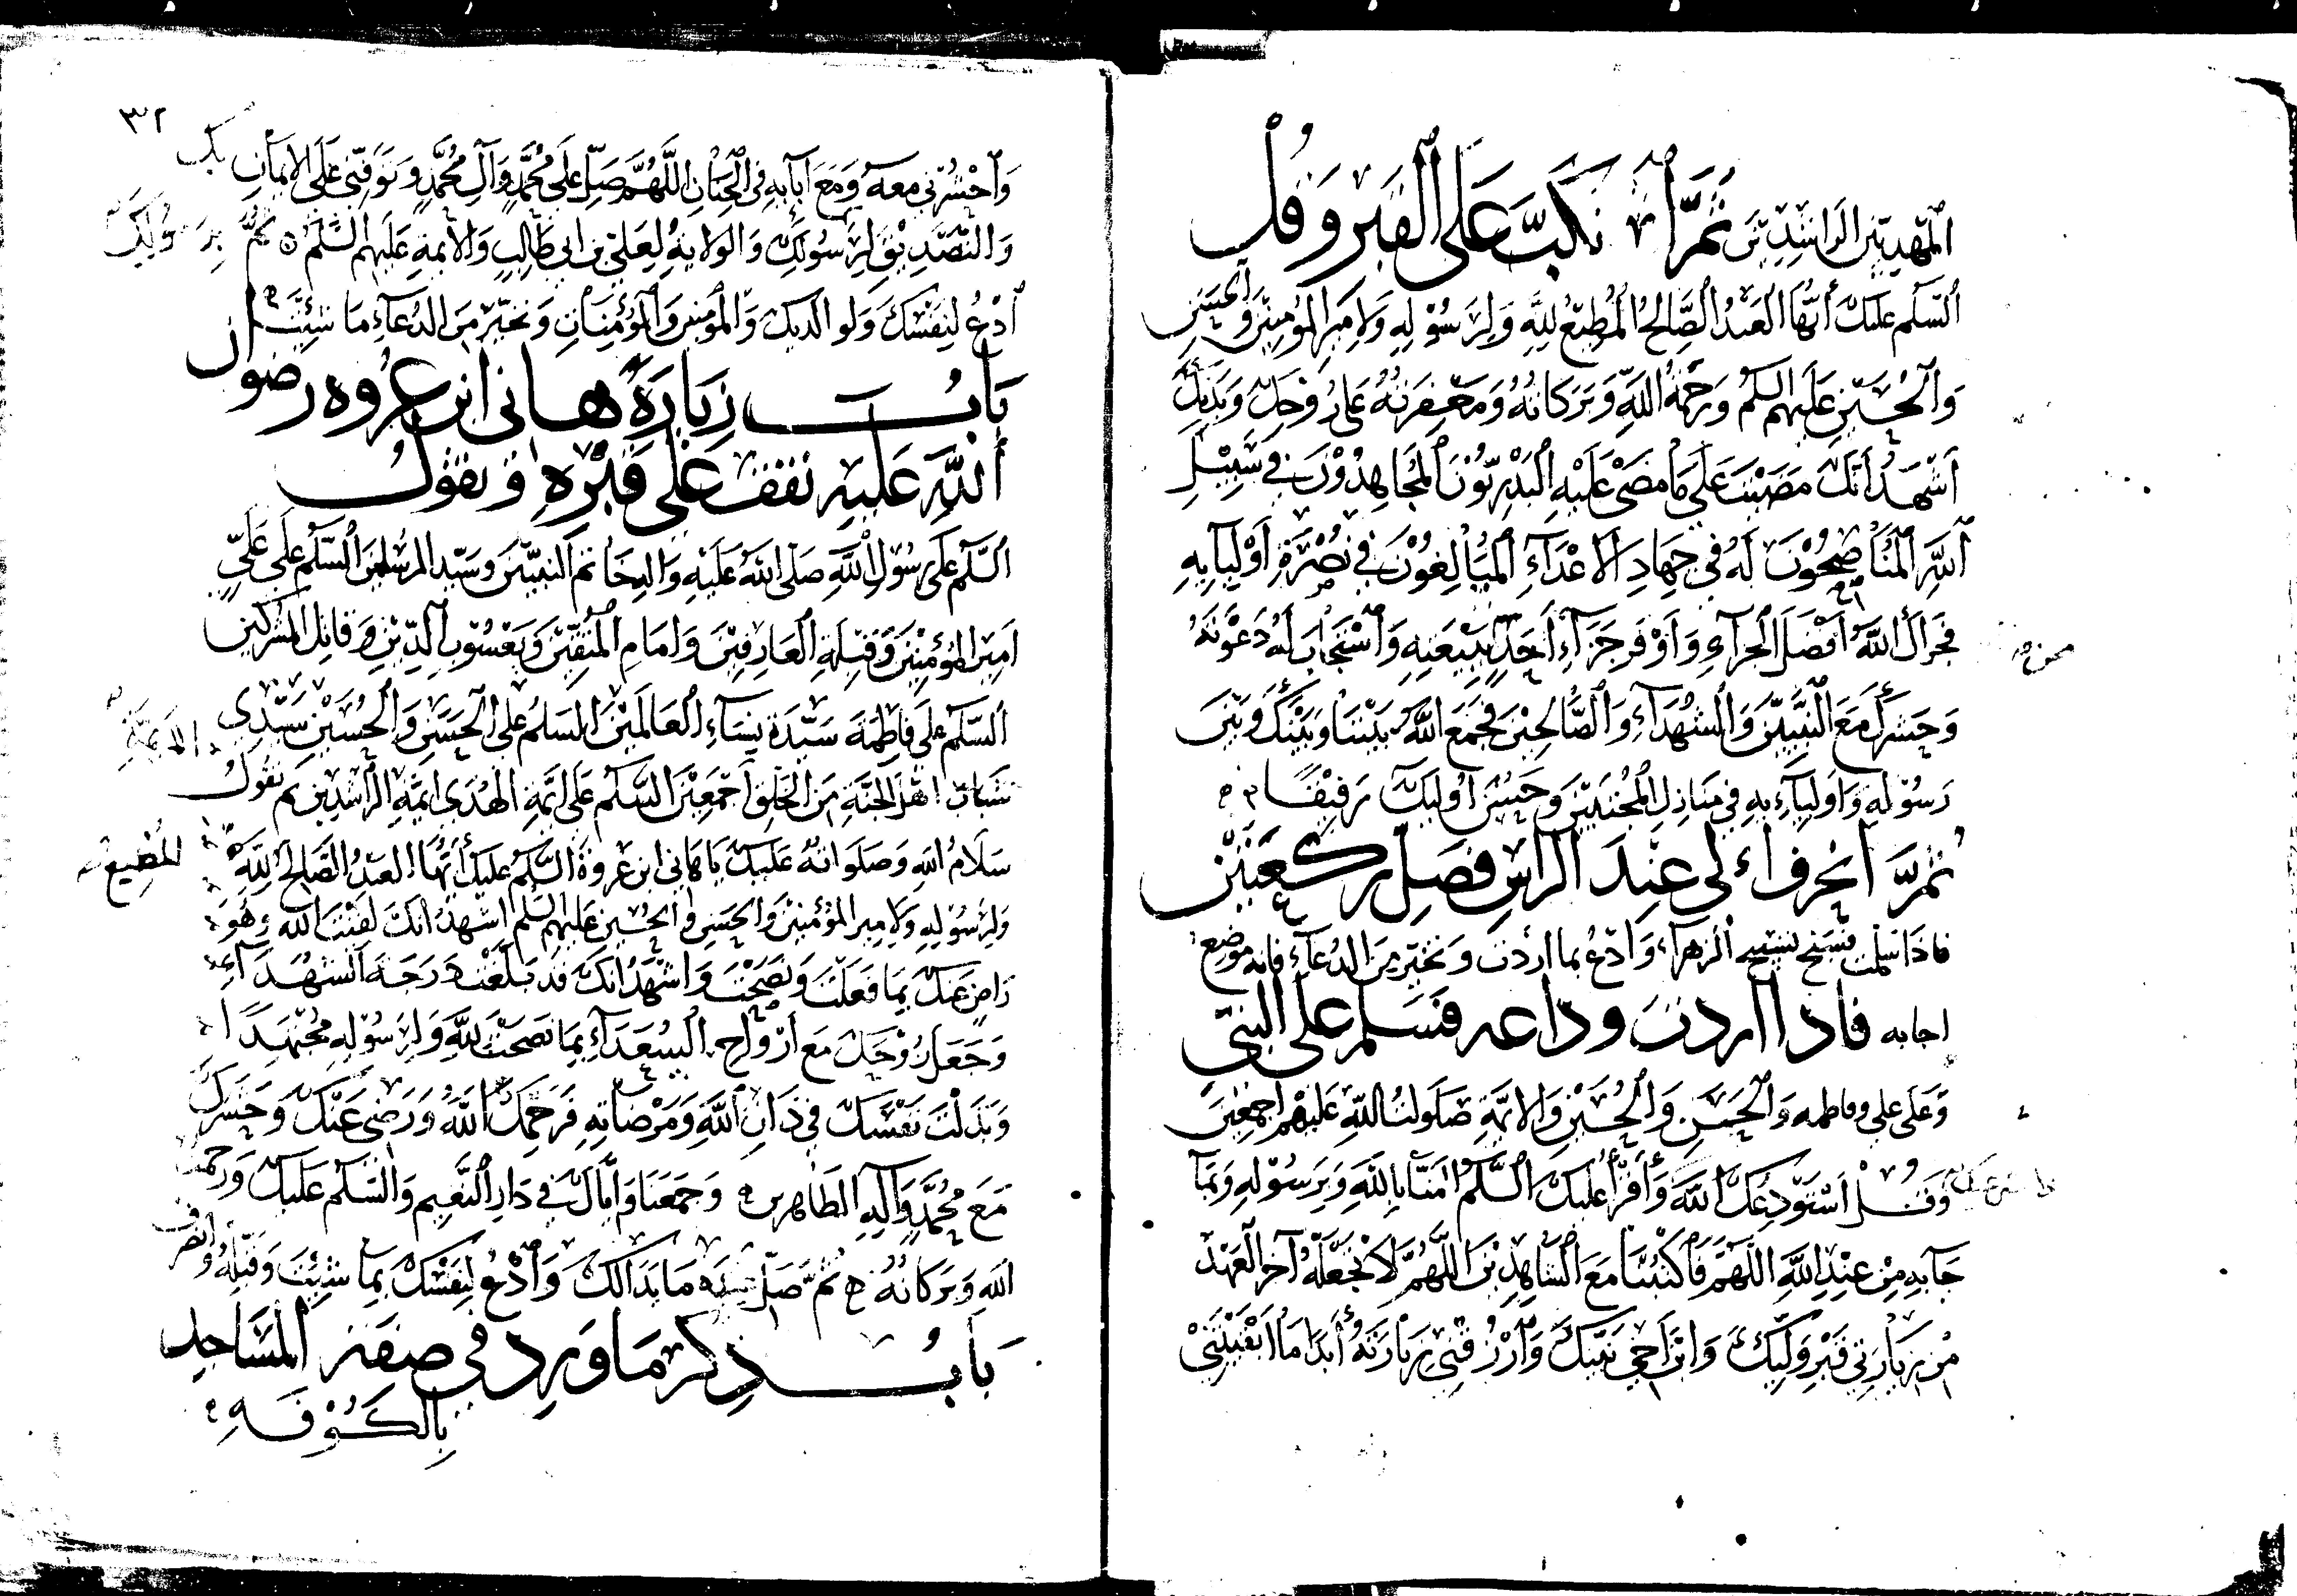 المهديين الراشدين ثمّ انكبّ على القبر وقل
السلم عليك أيها العبد الصالح المطيع لله ولرسوله ولامير المؤمنين والحسن
والحسين عليهم السلم ورحمة الله وبركاته ومغفرته على روحك وبدنك
أشهد أنك مضيت على ما مضى عليه البدريّون المجاهدون في سبيل
الله المناصحون له في جهاد الاعداء المبالغون في نصرة اوليايه
فجزاك الله افضل الجزاء واوفر جزاء احد ببيعته واستجاب له دعوته
وحشرك مع النبيين والشهداء والصالحين فجمع الله بيننا وبينك وبين
رسوله واوليائه في منازل المخبتين وحسن اوليك رفيقا
ثمّ انحرف الى عند الراس فصل ركعتين
فاذا سلمت فسبح تسبيح الزهراء وادع بما اردت وتخير من الدعاء فانه موضع
اجابه فاذا اردت وداعه فسلم على النبي
وعلى علي وفاطمه والحسن والحسين والايمة صلوات الله عليهم اجمعين
وقل أستودعك الله وأقرأ عليك السلم امنّا بالله وبرسوله وبما
جآء به من عند الله اللهم فاكتبنا مع الشاهدين اللهم لا تجعله آخر العهد
من زيارتي قبر وليك وابن اخي نبيك وارزقني زيارته أبدا ما ابقيتني
٣٢
واحشرني معه ومع آبآيه في الجنان اللهم صل على محمد وآل محمد وتوفني على الايمان بك
والتصديق لرسولك والولاية لعلي بن ابي طالب والايمة عليهم السلم ثم
برسولك
ادع لنفسك ولوالديك والمؤمنين والمؤمنات وتخير من الدعاء ما شئت
باب زيارة هاني ابن عروه رضوان
الله عليه تقف على قبره وتقول
السلم على رسول الله صلى الله عليه واله خاتم النبيين وسيد المرسلين السلم على عليّ
امير المؤمنين وقبلة العارفين وامام المتقين ويعسوب الدين وقاتل المشركين
السلم على فاطمة سيدة نساء العالمين السلم على الحسن والحسين سيدي
شباب اهل الجنة من الخلق اجمعين السلم على ائمة الهدى ائمة الراشدين ثم تقول
سلام الله وصلواته عليك يا هاني ابن عروة السلم عليك أيها العبد الصالح لله
المطيع
ولرسوله ولامير المؤمنين والحسن والحسين عليهم السلم اشهد انك لقيت الله وهو
راض عنك بما فعلت ونصحت واشهد انك قد بلغت درجة الشهداء
وجعل روحك مع ارواح السعداء بما نصحت لله ولرسوله مجتهدا
وبذلت نفسك في ذات الله ومرضاته فرحمك الله ورضي عنك وحشرك
مع محمد وآله الطاهرين وجمعنا وايّاك في دار النعيم والسلم عليك ورحمة
الله وبركاته ثم صل عنده ما بدا لك وادع لنفسك بما شئت وقبله وانصرف
باب ذكر ما ورد في صفة المساجد
بالكوفه